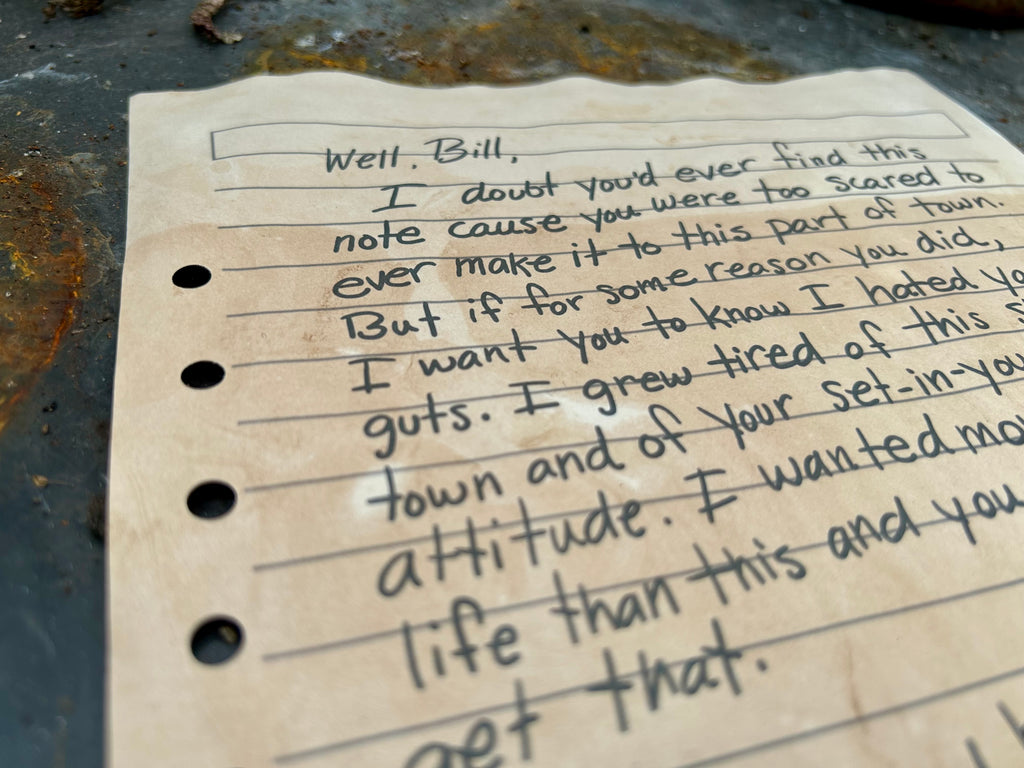 Well, Bill,
I doubt you'd ever find this
note cause you were too scared to
ever make it to this part of town.
But if for some reason you did,
I want you to know I hated
guts. I grew tired of this
town and of your set-in-you
attitude. I wanted
life than this and you
get that.